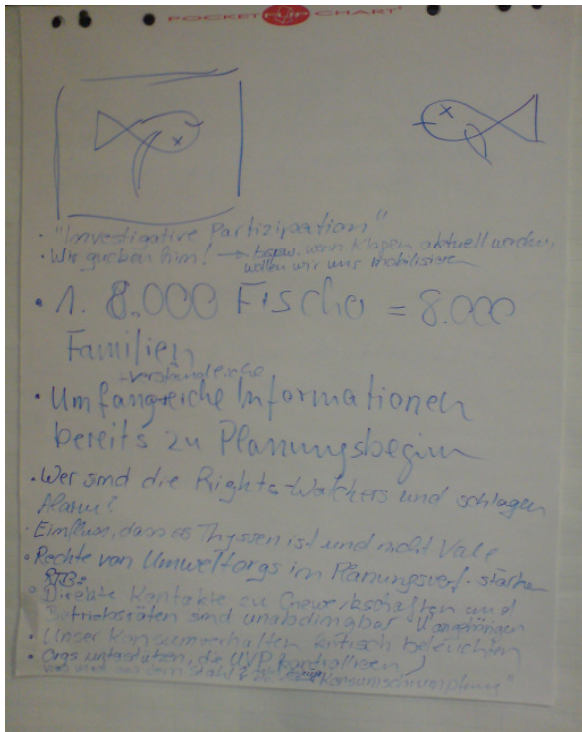 POCKET FLIP CHART
• "Investigative Partizipation"
• Wir gucken hin! → bspw. wenn Klagen aktuell werden,
wollen wir uns mobilisieren
• 1. 8.000 Fische = 8.000
Familien
+ verständliche
• Umfangreiche Informationen
bereits zu Planungsbeginn
• Wer sind die Rights-Watchers und schlagen
Alarm?
• Einfluss, dass es Thyssen ist und nicht Vale
• Rechte von Umweltorgs im Planungsverf. stärken
• Direkte Kontakte zu Gewerkschaften und
Betriebsräten sind unabdingbar
• Unser Konsumverhalten kritisch beleuchten
• Orgs unterstützen, die UVP kontrollieren
dem Stahl